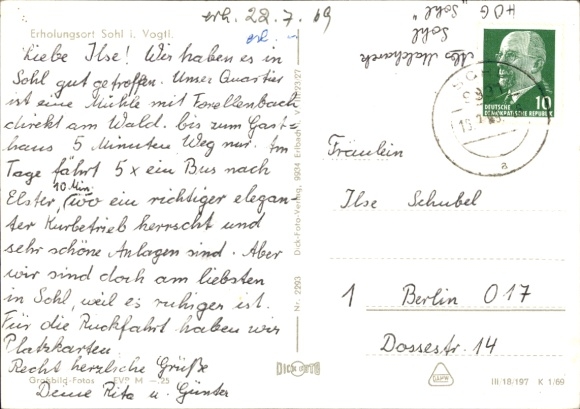 erh. 22.7.69
erh.
Erholungsort Sohl i. Vogtl.
Liebe Ilse! Wir haben es in
Sohl gut getroffen. Unser Quartier
ist eine Mühle mit Forellenbach
direkt am Wald. bis zum Gast-
haus 5 Minuten Weg nur. Im
Tage fährt 5 x ein Bus nach
10 Min.
Elster, (wo ein richtiger elegan-
ter Kurbetrieb herrscht und
sehr schöne Anlagen sind. Aber
wir sind doch am liebsten
in Sohl, weil es ruhiger ist.
Für die Rückfahrt haben wir
Platzkarten.
Recht herzliche Grüße
Deine Rita u. Günter
Großbild-Fotos EVP M —.25
Nr. 2293 Dick-Foto-Verlag, 9934 Erlbach i. V.
DICK FOTO
HOG
"Sohl"
Sohl
DEUTSCHE
DEMOKRATISCHE REPUBLIK
10
a
Fräulein
Ilse Schubel
1 Berlin O 17
Dossestr. 14
III/18/197 K 1/69